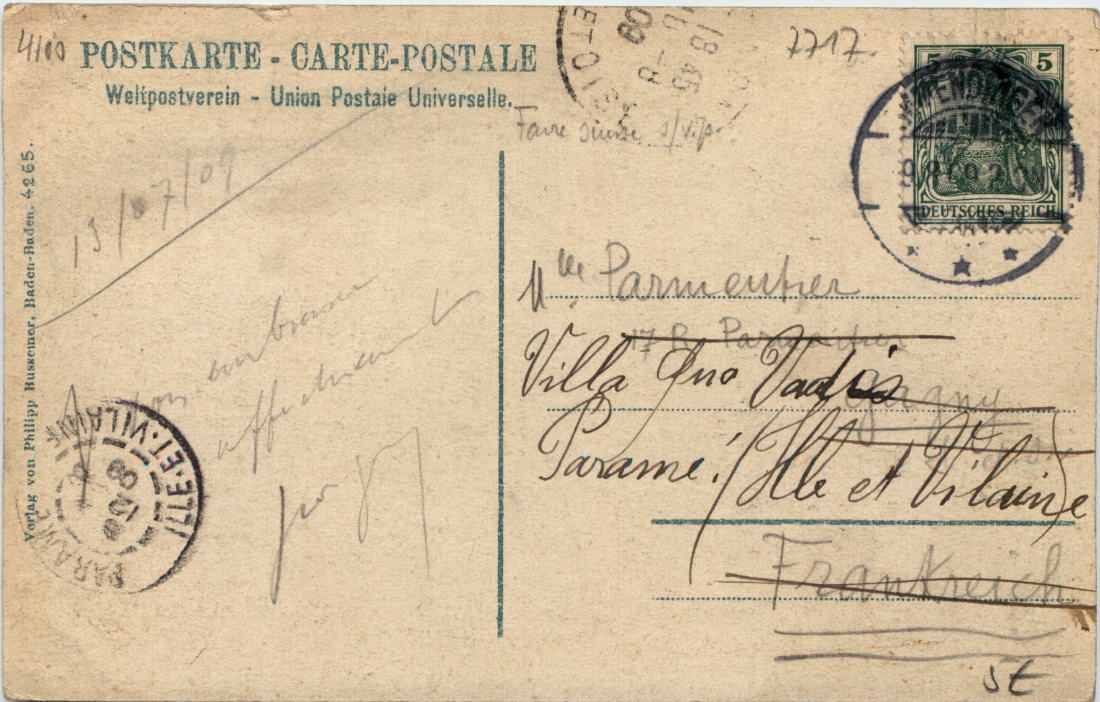 4100
7717.
POSTKARTE - CARTE-POSTALE
Weltpostverein - Union Postale Universelle.
ET OISE
18 45
09
5 5
DEUTSCHES REICH
Faire suivre s/v.p.
13/07/09
Mlle Parmentier
17 R Parmentier
Villa Quo Vadis
Gagny
Paramé. (Ille et Vilaine)
Frankreich
embrasse
affectueusement
PARAMÉ
ILLE-ET-VILAINE
09
Verlag von Philipp Husseiner, Baden-Baden. 4265.
5t